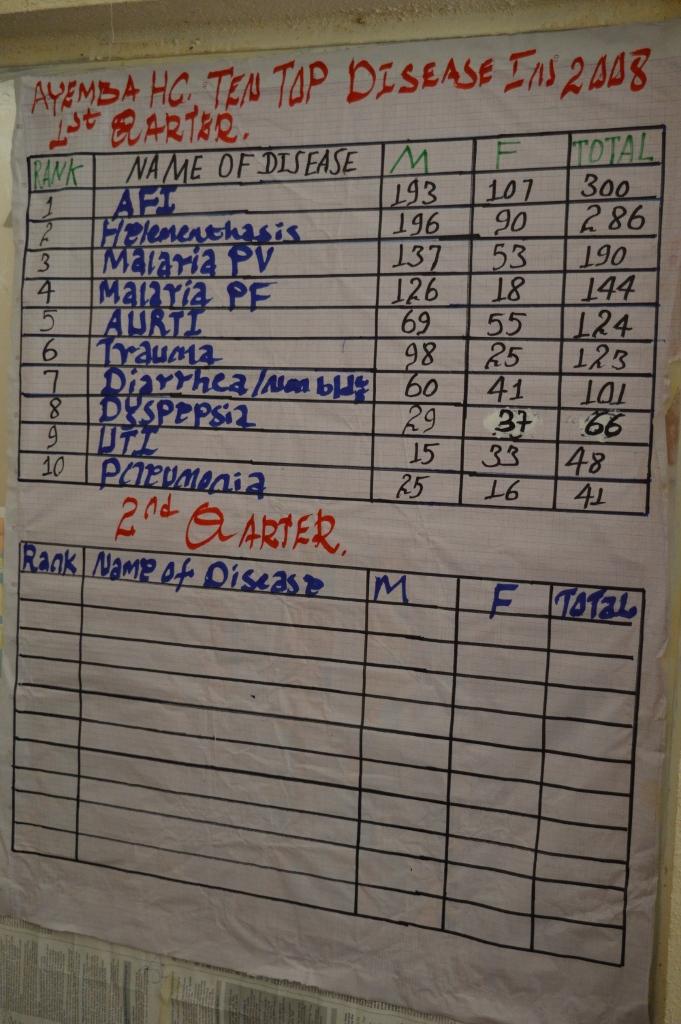 AYEMBA HC. TEN TOP DISEASE IN 2008
1st QARTER.
RANK NAME OF DISEASE M F TOTAL
1 AFI 193 107 300
2 Helementhasis 196 90 286
3 Malaria PV 137 53 190
4 Malaria PF 126 18 144
5 AURTI 69 55 124
6 Trauma 98 25 123
7 Diarrhea/ 60 41 101
8 Dyspepsia 29 37 66
9 UTI 15 33 48
10 Pneumonia 25 16 41
2nd QARTER.
Rank Name of Disease M F TOTAL